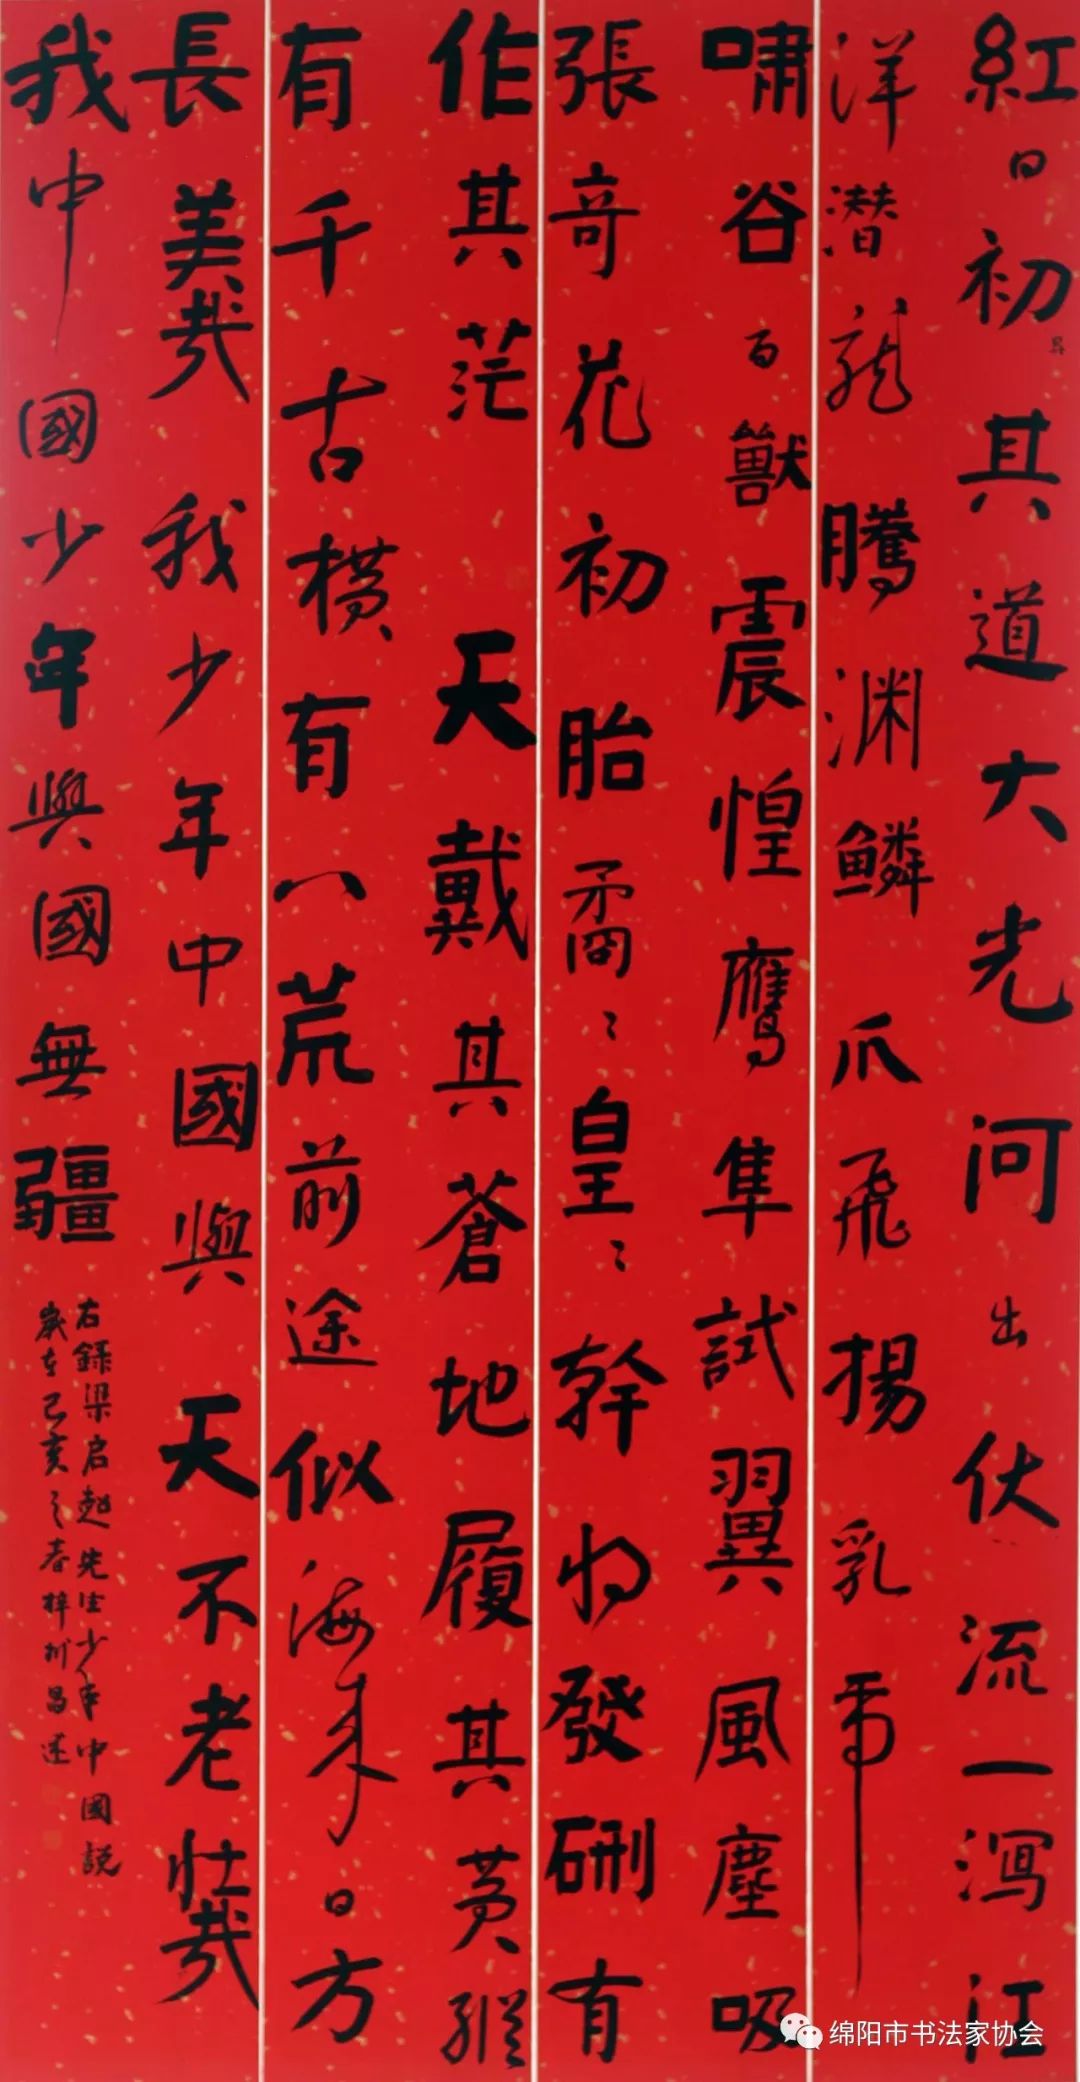 紅日初昇其道大光河出伏流一瀉汪
洋潜龍騰渊鳞爪飛揚乳虎
啸谷百獸震惶鷹隼試翼風塵吸
張奇花初胎矞〻皇〻幹将發硎有
作其茫天戴其蒼地履其黄縱
有千古横有八荒前途似海来日方
長美哉我少年中國與天不老壮哉
我中國少年與國無疆
右録梁启超先生少年中國説
歲在己亥之春梓州昌述
绵阳市书法家协会